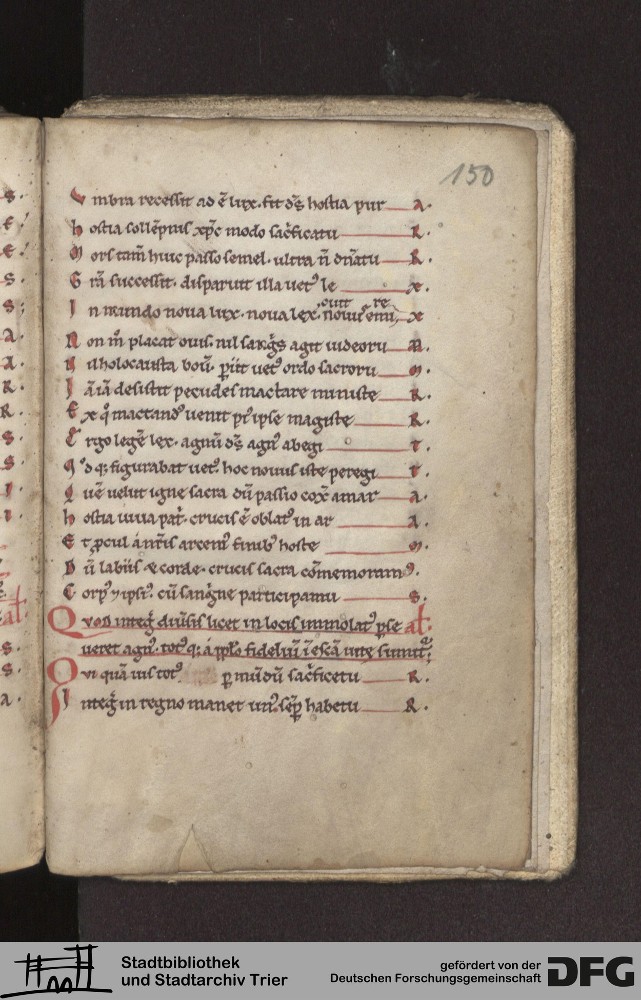 150
Vmbra recessit ad ē lux. fit dꝰs hostia pur A.
hostia sollēpnis xp̄c modo sac̓ficatu R.
Mors tam̄ huic passo semel. ultra n̄ dn̄atu R.
Grā successit. disparuit illa uetꝰ le x.
In mundo noua lux. noua lex x
Non m̄ placat ouis. nil sang̓s agit uideoru m.
Nil holocausta boū. ꝑiit uetꝰ ordo sacroru m.
Iā iā desistit pecudes mactare ministe R.
Ex q̊ mactandꝰ uenit ip̄e magiste R.
Ergo legē lex. agnū dꝰs agnꝰ abegi T.
Qd̓ q; figurabat uetꝰ. hoc nouus iste peregi T.
Quē uelut igne sacra dū passio cox̄ amar A.
hostia uiua pat̓. crucis ē oblatꝰ in ar A.
Et ꝓcul a nr̄is arcem̓ finibꝰ hoste m.
Dū labiis ⁊ corde. crucis sacra cōmemoramꝰ.
Corpꝰ ipsiꝰ. cū sang̓ne participamu S.
Qvod integ̓ diuisis licet in locis immolatꝰ ꝑse al
ueret agnꝰ. totꝰ q; a pp̄lo fidelium ī escā uite sumit̓;
Qui quāuis totꝰ ꝑ mūdū sac̓ficetu R.
Integ̓ in regno manet unꝰ. sēꝑ habetu R.
Stadtbibliothek
und Stadtarchiv Trier
gefördert von der
Deutschen Forschungsgemeinschaft
DFG